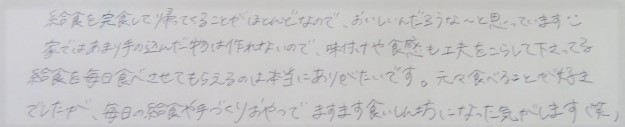 給食を完食して帰ってくることがほとんどなので、おいしいんだろうな〜と思っています☺
家ではあまり手の込んだ物は作れないので、味付けや食感も工夫をこらして下さってる
給食を毎日食べさせてもらえるのは本当にありがたいです。元々食べることが好き
でしたが、毎日の給食や手づくりおやつでますます食いしん坊になった気がします(笑)